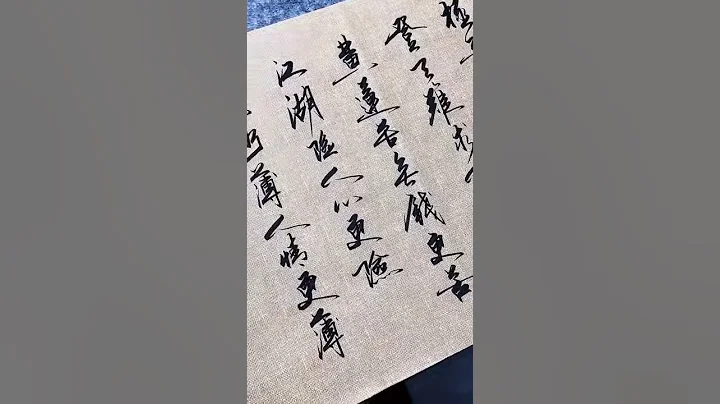 登天難求
黃蓮苦無錢更苦
江湖險人心更險
薄人情更薄